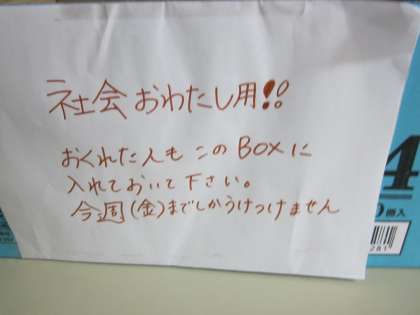 社会おわたし用!!
おくれた人もこのBOXに
入れておいて下さい。
今週(金)までしかうけつけません
4
個入